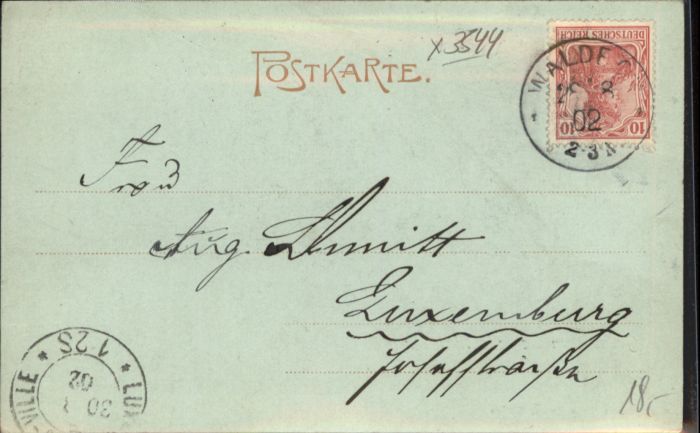 x3544
POSTKARTE.
DEUTSCHES REICH
10 10
WALDF
8
02
2-3 N
Frau
Aug. Schmitt
Luxemburg
Josefstraße
* 1-2S *
LUX
VILLE
30
02
18,-